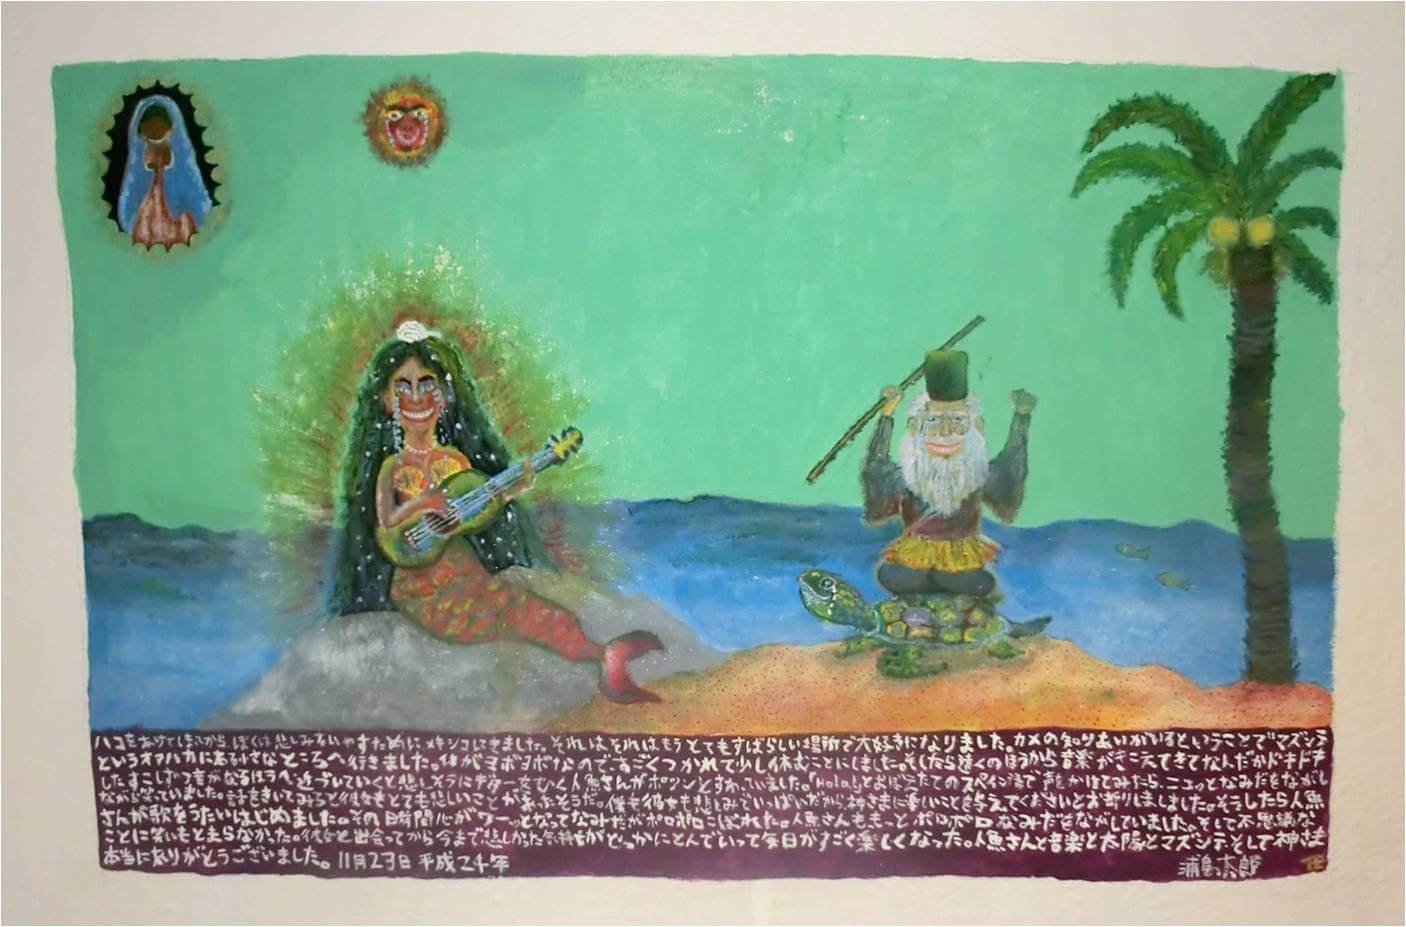 ハコをあけてしまってから、ぼくは悲しみをいやすためにメキシコにきました。それは、それはもうとてもすばらしい場所で大好きになりました。カメの知りあいがいるということでマズンテ
というオアハカにある小さなところへ行きました。体がヨボヨボなのですごくつかれて少し休むことにしました。そしたら遠くのほうから音楽がきこえてきてなんだかドキドキ
しました。すこしずつ音がなるほうへ近づいていくと悲しそうにギターをひく人魚さんがポツンとすわっていました。「Hola!」とおぼえたてのスペイン語で声かけてみたら、ニコッとなみだをながし
ながら笑っていました。話をきいてみると彼女もとても悲しいことがあったそうだ。僕も彼女も悲しみでいっぱいだから神さまに楽しいことを与えてくださいとお祈りしました。そうしたら人魚
さんが歌をうたいはじめました。その瞬間心がワーッとなってなみだがポロポロこぼれた。人魚さんももっとポロポロなみだをながしていました。そして不思議な
ことに笑いもとまらなかった。彼女と出会ってから今まで悲しかった気持ちがどっかにとんでいって毎日がすごく楽しくなった。人魚さんと音楽と太陽とマズンテ、そして神さま
本当にありがとうございました。11月23日 平成24年
浦島太郎